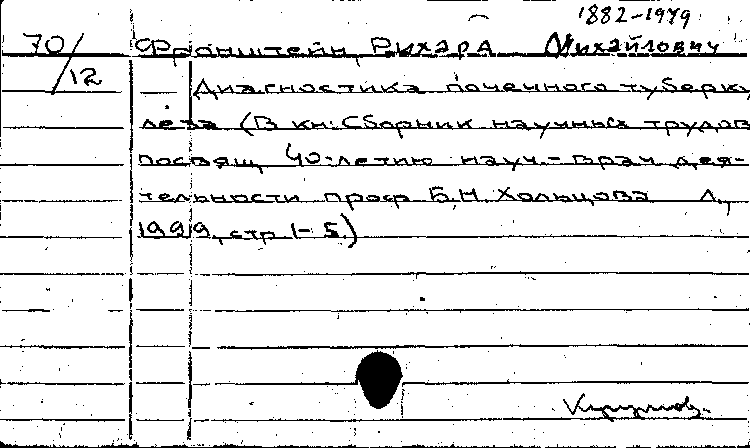 1882-1979
70/12 Фронштейн, Рихард Михайлович
— Диагностика почечного туберку
леза (В кн: Сборник научных трудов
посвящ 40-летию науч.-врач дея-
тельности проф Б.Н. Хольцова Л.,
1929, стр 1-5)